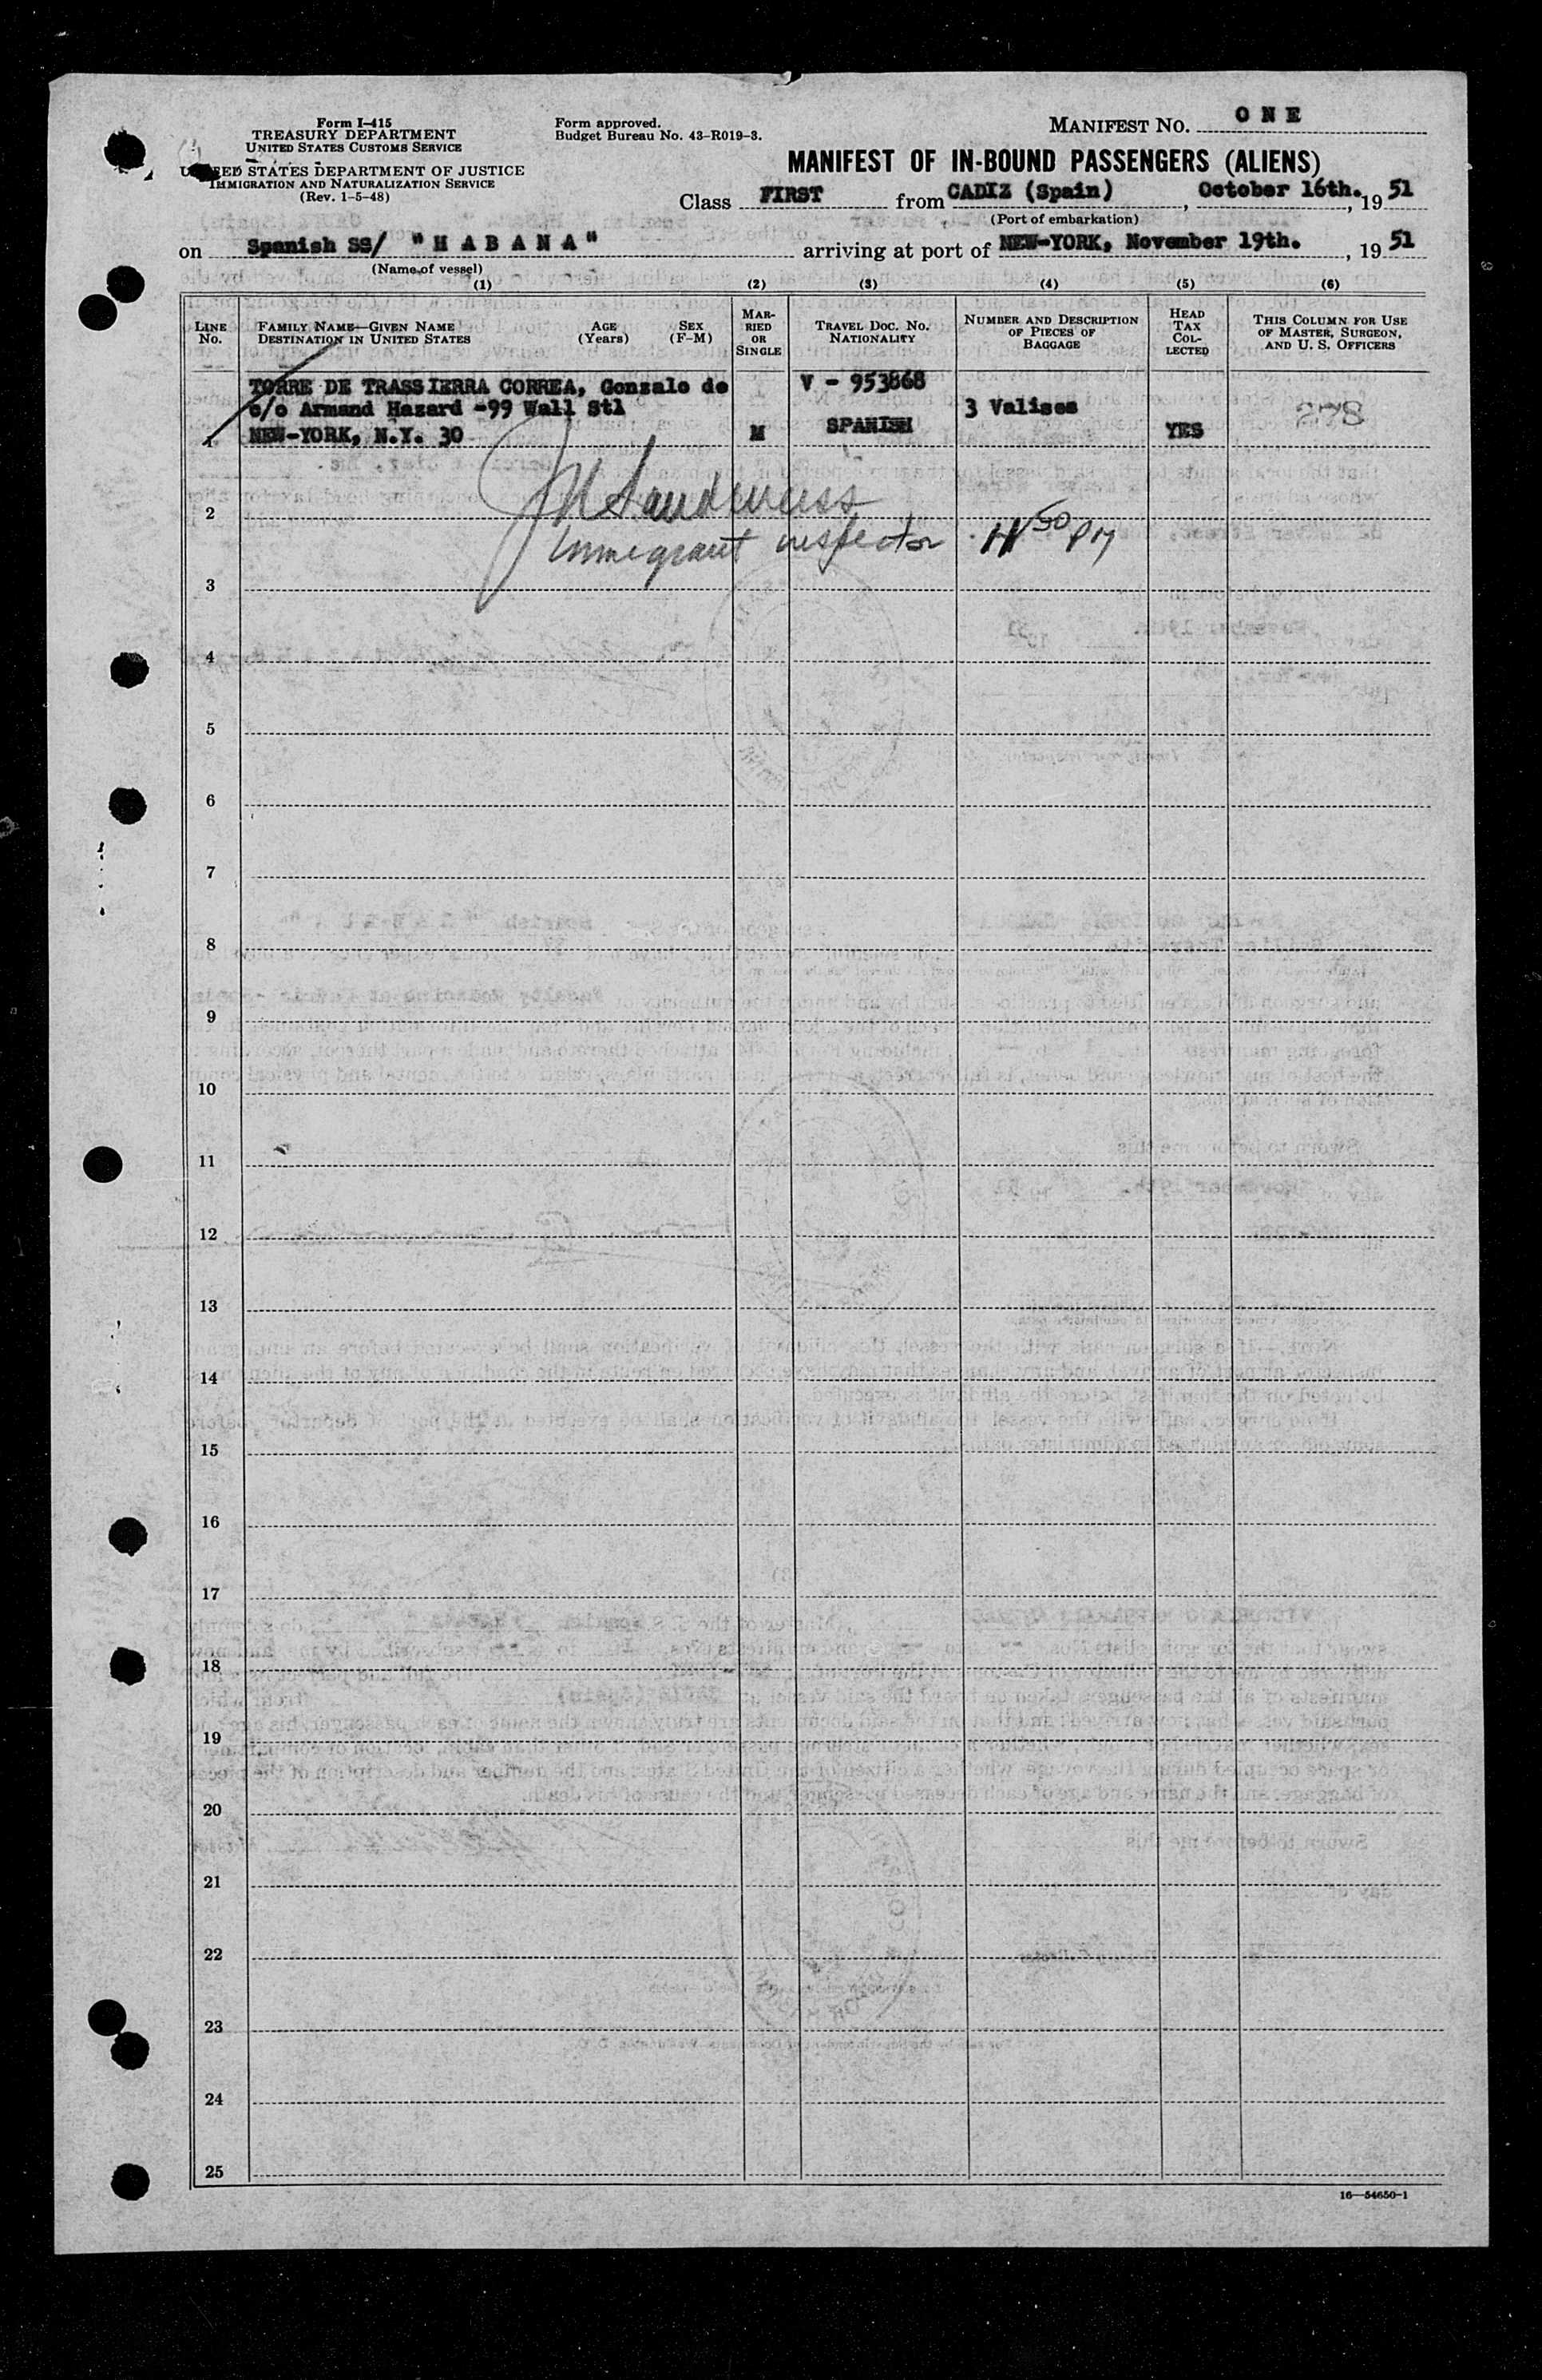 Form I-415
TREASURY DEPARTMENT
UNITED STATES CUSTOMS SERVICE
UNITED STATES DEPARTMENT OF JUSTICE
IMMIGRATION AND NATURALIZATION SERVICE
(Rev. 1-5-48)
Form approved.
Budget Bureau No. 43-R019-3.
MANIFEST No. ONE
MANIFEST OF IN-BOUND PASSENGERS (ALIENS)
Class FIRST from CADIZ (Spain), October 16th., 1951
(Port of embarkation)
on Spanish SS/ "HABANA" arriving at port of NEW-YORK, November 19th., 1951
(Name of vessel)
(1) (2) (3) (4) (5) (6)
LINE No.
FAMILY NAME—GIVEN NAME
DESTINATION IN UNITED STATES
AGE (Years)
SEX (F-M)
MARRIED OR SINGLE
TRAVEL DOC. NO.
NATIONALITY
NUMBER AND DESCRIPTION OF PIECES OF BAGGAGE
HEAD TAX COLLECTED
THIS COLUMN FOR USE OF MASTER, SURGEON, AND U. S. OFFICERS
TORRE DE TRASSIERRA CORREA, Gonzalo de V - 953868
c/o Armand Hazard -99 Wall Stl 3 Valises 278
1 NEW-YORK, N.Y. 30 M SPANISH YES
2
Immigrant inspector PM
3
4
5
6
7
8
9
10
11
12
13
14
15
16
17
18
19
20
21
22
23
24
25
16—54650-1